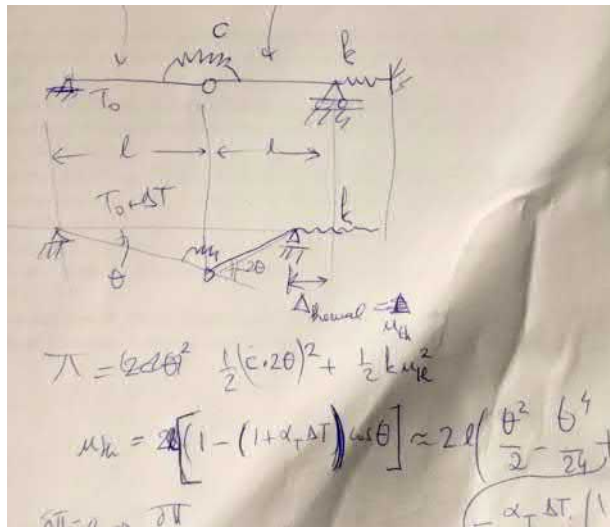 C
k
T₀
l l
T₀+ΔT
k
θ 2θ
Δ_thermal =
u_th
π = (2cθ)² ½(c·2θ)² + ½ k u_k²
u_k = 2l[(1-(1+α_T ΔT)cosθ] ≈ 2l(θ²/2 - θ⁴/24 +
α_T ΔT